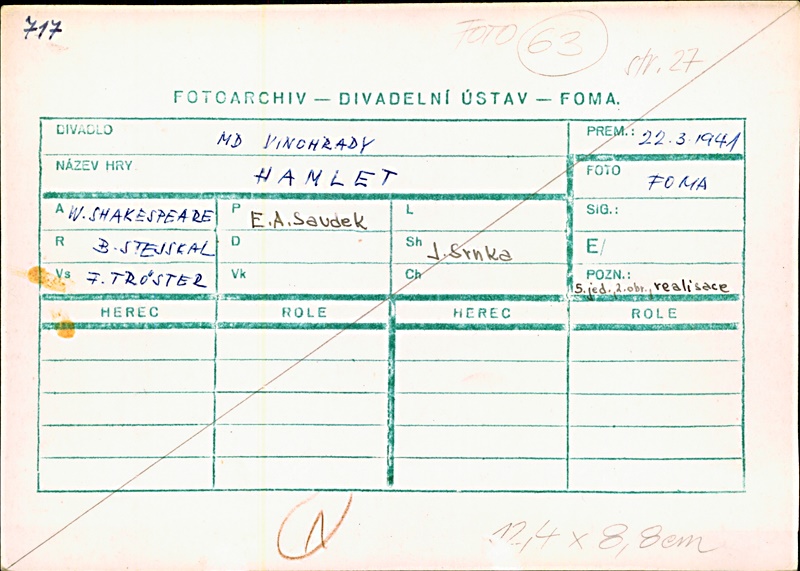 717
FOTO 63
str. 27
FOTOARCHIV — DIVADELNÍ ÚSTAV — FOMA.
DIVADLO MD VINOHRADY PREM.: 22.3.1941
NÁZEV HRY HAMLET FOTO FOMA
A W. SHAKESPEARE P E.A.Saudek L SIG.:
R B. STEJSKAL D Sh J. Srnka E/
Vs F. TRÖSTER Vk Ch POZN.: 5. jed., 2. obr., realisace
HEREC ROLE HEREC ROLE
1
12,4 x 8,8cm